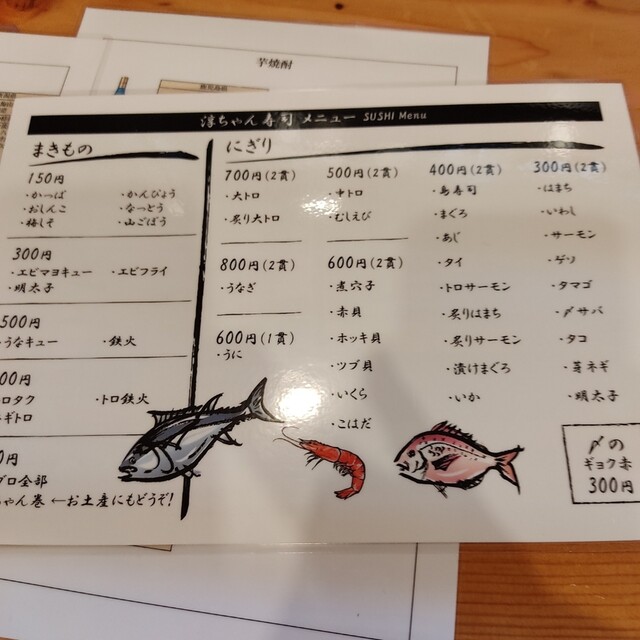 芋焼酎
淳ちゃん寿司メニュー SUSHI Menu
まきもの
150円
・かっぱ ・かんぴょう
・おしんこ ・なっとう
・梅しそ ・山ごぼう
300円
・エビマヨキュー ・エビフライ
・明太子
500円
・うなキュー ・鉄火
00円
ロタク ・トロ鉄火
ギトロ
0円
グロ全部
ちゃん巻 ←お土産にもどうぞ!
にぎり
700円(2貫)
・大トロ
・炙り大トロ
800円(2貫)
・うなぎ
600円(1貫)
・うに
500円(2貫)
・中トロ
・むしえび
600円(2貫)
・煮穴子
・赤貝
・ホッキ貝
・ツブ貝
・いくら
・こはだ
400円(2貫)
・島寿司
・まぐろ
・あじ
・タイ
・トロサーモン
・炙りはまち
・炙りサーモン
・漬けまぐろ
・いか
300円(2貫)
・はまち
・いわし
・サーモン
・ゲソ
・タマゴ
・〆サバ
・タコ
・芽ネギ
・明太子
〆の
ギョク赤
300円